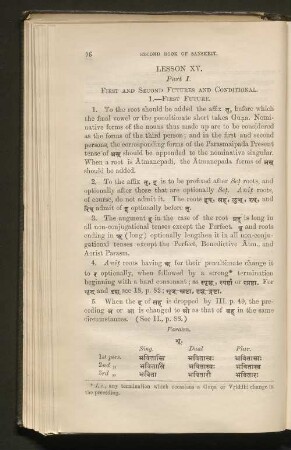 96 SECOND BOOK OF SANSKRIT.
LESSON XV.
Part I.
FIRST AND SECOND FUTURES AND CONDITIONAL.
1.—FIRST FUTURE.
1. To the root should be added the affix तृ, before which
the final vowel or the penultimate short takes Guṇa. Nomi-
native forms of the nouns thus made up are to be considered
as the forms of the third person; and in the first and second
persons, the corresponding forms of the Parasmaipada Present
tense of अस् should be appended to the nominative singular.
When a root is Âtmanepadî, the Âtmanepada forms of अस्
should be added.
2. To the affix तृ, इ is to be prefixed after Seṭ roots, and
optionally after those that are optionally Seṭ. Aniṭ roots,
of course, do not admit it. The roots इष्, सह्, लुभ्, रुष्, and
रिष् admit of इ optionally before तृ.
3. The augment इ in the case of the root ग्रह् is long in
all non-conjugational tenses except the Perfect. वृ and roots
ending in ॠ ( long ) optionally lengthen it in all non-conju-
gational tenses except the Perfect, Benedictive Âtm., and
Aorist Parasm.
4. Aniṭ roots having ऋ for their penultimate change it
to र optionally, when followed by a strong* termination
beginning with a hard consonant; as
सृज् and दृश् see 13, p. 83;
5. When the ढ् of is dropped by III. p. 40, the pre-
ceding अ or आ is changed to ओ as that of वह् in the same
circumstances. (See II., p. 88.)
Parasm.
भू.
Sing. Dual. Plur.
1st pers. भवितास्मि भवितास्वः भवितास्मः
2nd „ भवितासि भवितास्थः भवितास्थ
3rd „ भविता भवितारौ भवितारः
* I.e., any termination which occasions a Guṇa or Vṛiddhi change in
the preceding.